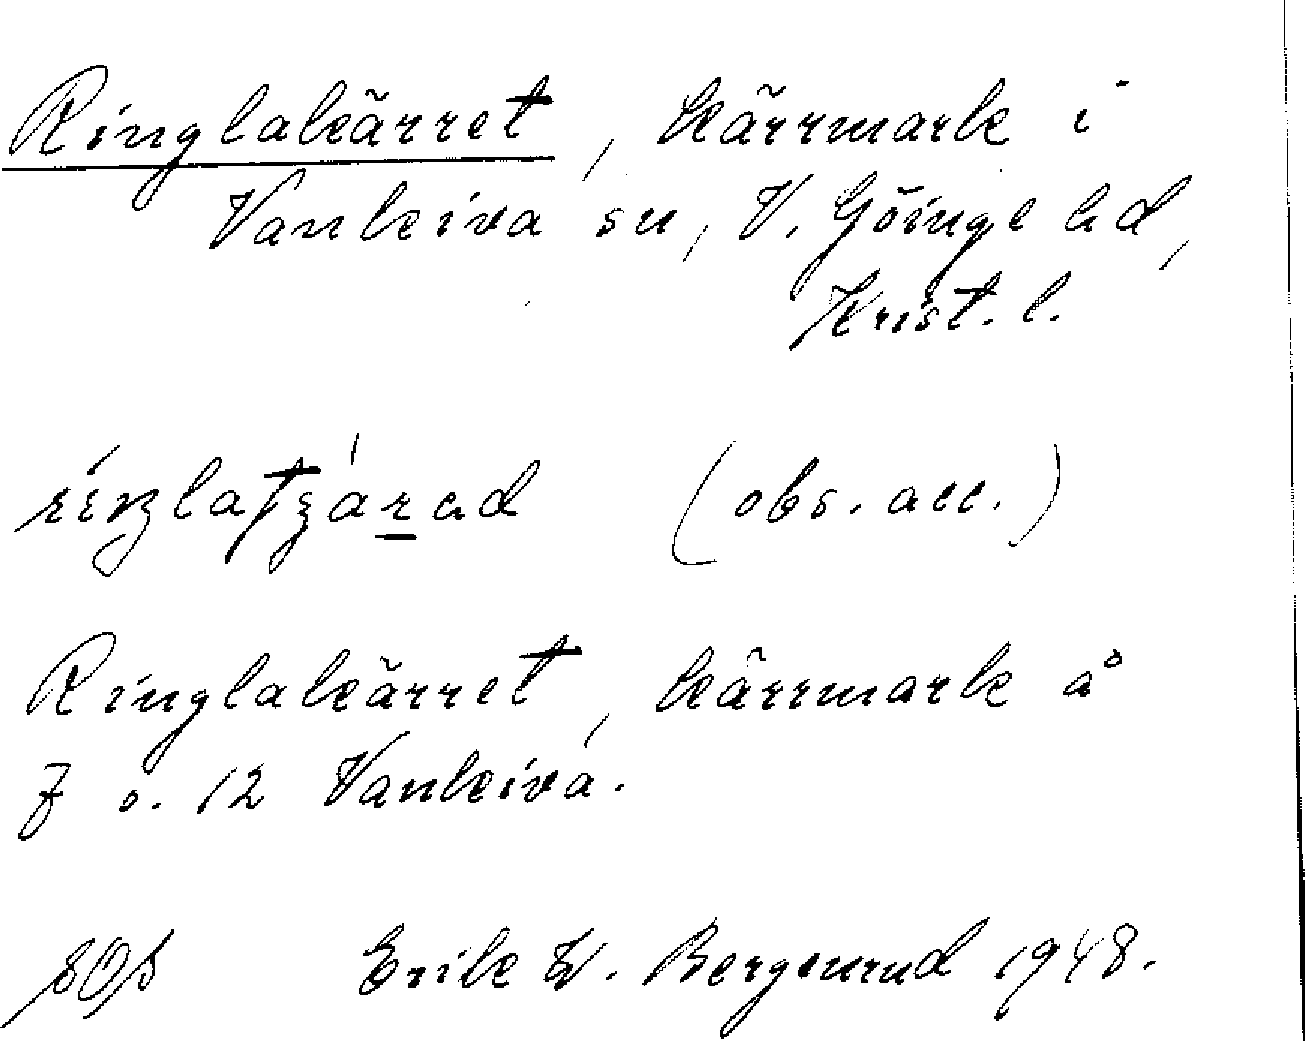 Ringlakärret, kärrmark i
Vankiva sn, V. Göinge hd,
Krist. l.
(obs. acc.)
Ringlakärret, kärrmark å
7 o. 12 Vankiva.
Erik W. Bergenrud 1948.